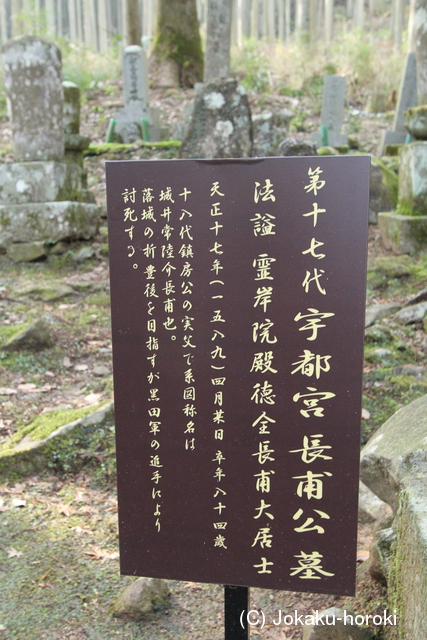 第十七代宇都宮長甫公墓
法謚 霊岸院殿徳全長甫大居士
天正十七年(一五八九)四月某日 卒年八十四歳
十八代鎮房公の実父で系図称名は
城井常陸介長甫也。
落城の折豊後を目指すが黒田軍の追手により
討死する。
(C) Jokaku-horoki